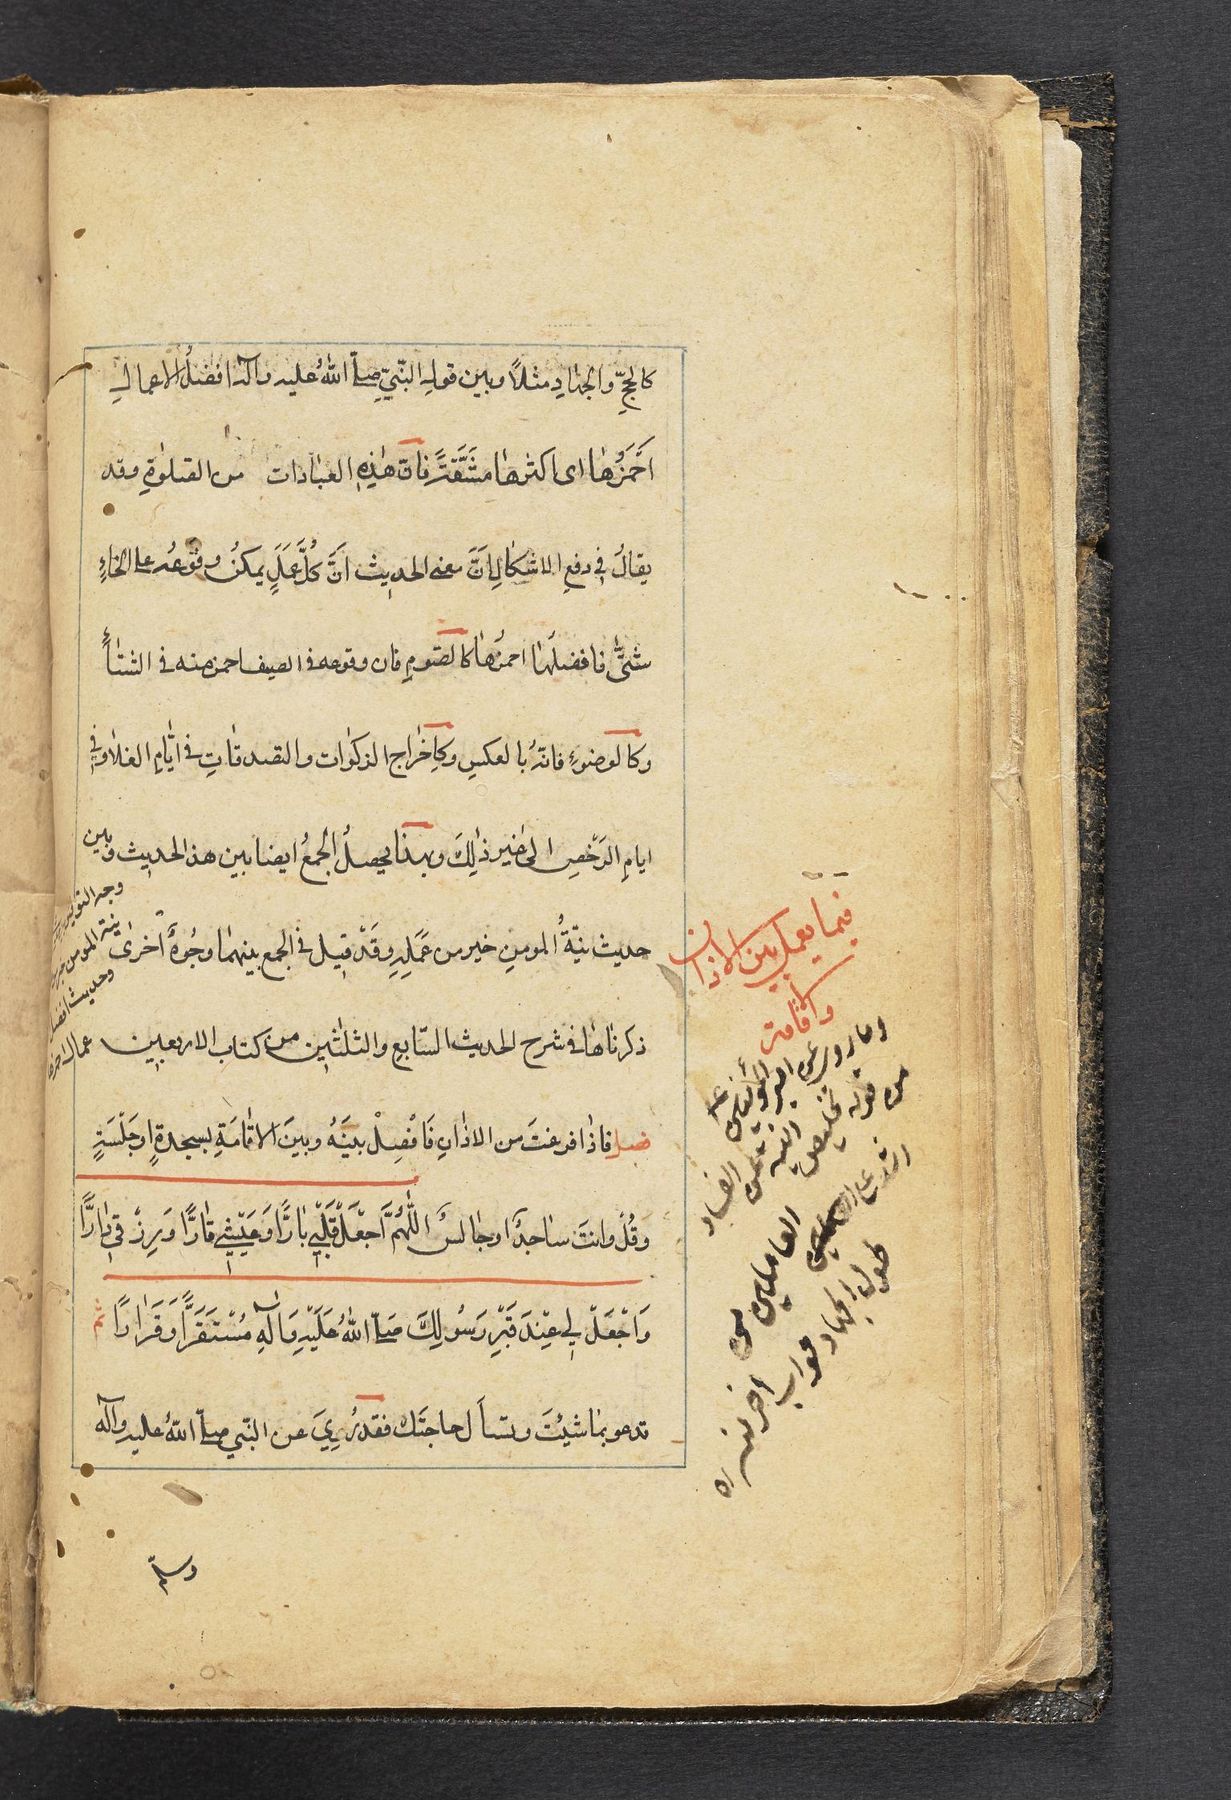 كالحجّ والجهادِ مثلاً وبين قولِهِ النّبيّ صلّى اللهُ عليه وآله افضلُ الاعمالِ
اَحْمَزُها اى اكثرها مَشَقَّةً فانّ هٰذِهِ العبادات من الصلوٰةِ وقد
يقالُ فى دفع الاشكالِ انَّ معنى الحديث انَّ كُلَّ عَمَلٍ يمكنُ وقوعُه على انحاءٍ
شتّىٰ فافضلُها احمزُها كالصّومِ فان وقوعه فى الصيف احمز منه فى الشتأ
وكالوضوءِ فانّهُ بالعكسِ وكاِخراجِ الزكوات والتصدقاتِ فى ايّامِ الغلاء وفى
ايامِ الرَّخْصِ الى غير ذٰلِكَ وبهذا يحصلُ الجمعُ ايضا بين هذ الحديث وبين
حديث نيّةُ المومنِ خير من عَمَلِهِ وقَدْ قيل فى الجمع بينهما وجُوهٌ اُخرىٰ
ذكرناها فى شرح الحديث السّابع والثلٰثين من كتاب الاربعين
فصل فاذا فرغتَ من الاذانِ فَافْصِلْ بينَهُ وبينَ الاقامَةِ بسجدةٍ اوجَلْسَةٍ
وقُلْ وانتَ ساجدٌ اوجالسٌ اللّٰهُمَّ اجْعَلْ قَلْبِي بَارًّا وَعَيْشِي قَارًّا وَرِزْقِي دَارًّا
وَاجْعَلْ لِي عِنْدَ قَبْرِ رَسُولِكَ صَلّى اللهُ عَلَيْهِ وَآلِهِ مُسْتَقَرًّا وَقَرَارًا ثم
تدعو بما شئتَ وتسأل حاجتَك فقد رُوِيَ عن النّبي صلّى اللهُ عليه وآله
وسلّم
فيما يعمل بين الاذان
واقامة
وما روى عن امير المؤمنين
من قوله تخليص النية عن الفساد
اشد على العاملين من
طول الجهاد
وجه التوفيق
نية المومن خير
وحديث افضل